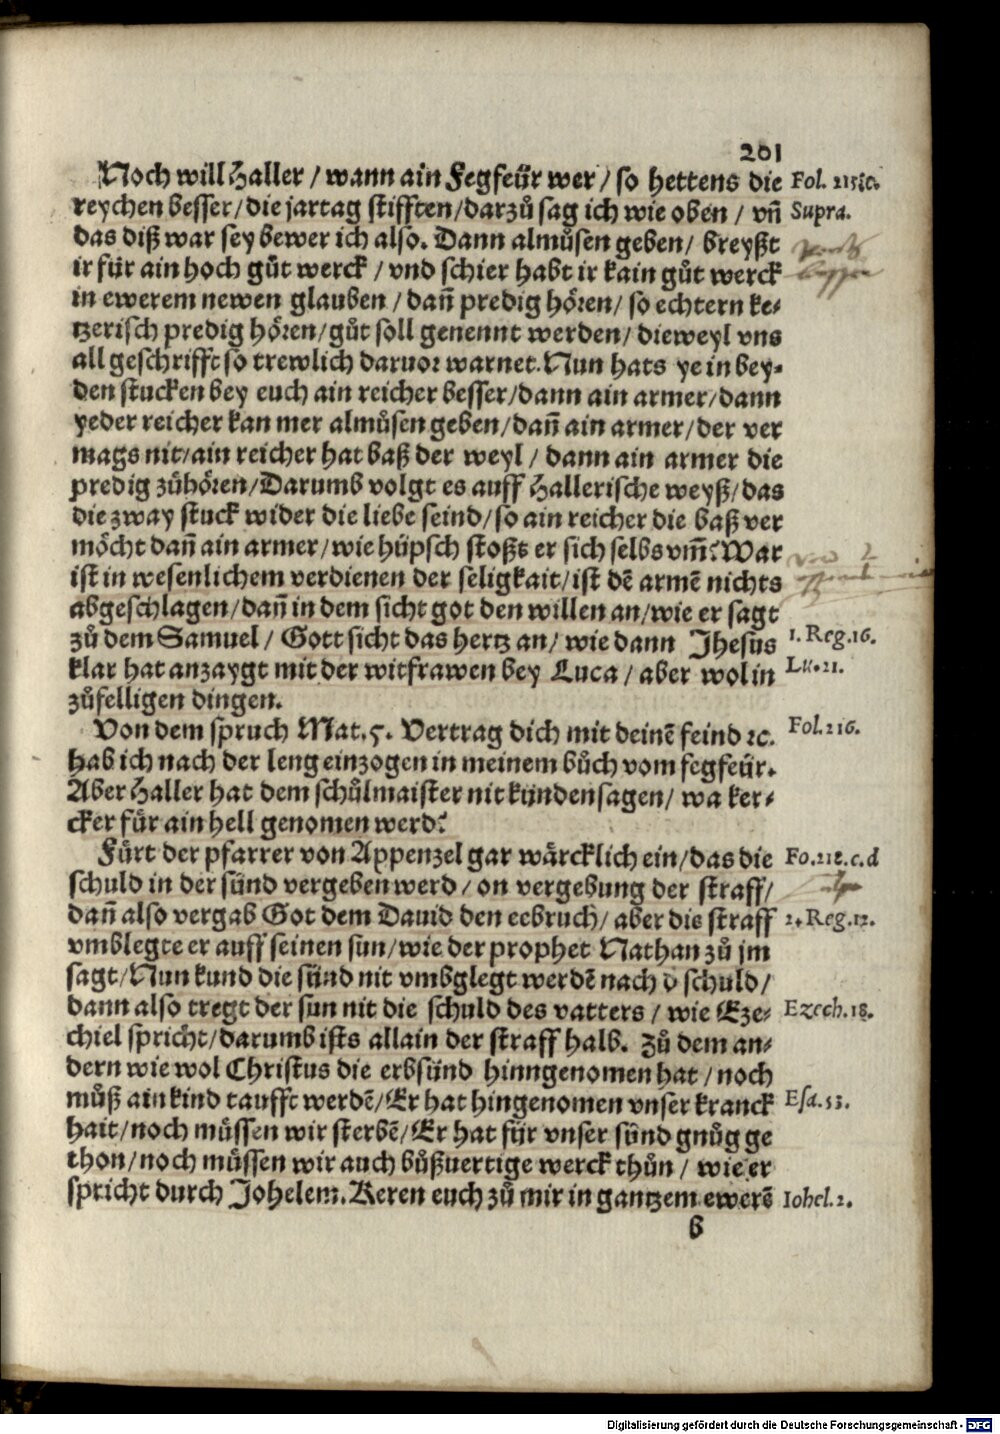 201
Noch will Haller / wann ain Fegfeür wer / so hettens die Fol. 115.c.
reychen besser / die jartag stifften / darzů sag ich wie oben / vñ Supra.
das diß war sey bewer ich also. Dann almůsen geben / breyßt
ir für ain hoch gůt werck / vnd schier habt ir kain gůt werck
in ewerem newen glauben / dañ predig hören / so echtern ke⸗
tzerisch predig hören / gůt soll genennt werden / dieweyl vns
all geschrifft so trewlich daruor warnet. Nun hats ye in bey⸗
den stucken bey euch ain reicher besser / dann ain armer / dann
yeder reicher kan mer almůsen geben / dañ ain armer / der ver
mags nit / ain reicher hat baß der weyl / dann ain armer die
predig zůhören / Darumb volgt es auff Hallerische weyß / das
die zway stuck wider die liebe seind / so ain reicher die baß ver
möcht dañ ain armer / wie hüpsch stoßt er sich selbs vm̃? War
ist in wesenlichem verdienen der seligkait / ist dē armē nichts
abgeschlagen / dañ in dem sicht got den willen an / wie er sagt
zů dem Samuel / Gott sicht das hertz an / wie dann Jhesus 1. Reg. 16.
klar hat anzaygt mit der witfrawen bey Luca / aber wol in Lu. 21.
zůfelligen dingen.
Von dem spruch Mat. 5. Vertrag dich mit deinē feind ꝛc. Fol. 116.
hab ich nach der leng einzogen in meinem bůch vom fegfeür.
Aber Haller hat dem schůlmaister nit künden sagen / wa ker⸗
cker für ain hell genomen werd?
Fürt der pfarrer von Appenzel gar wärcklich ein / das die Fo. 118. c. d
schuld in der sünd vergeben werd / on vergebung der straff /
dañ also vergab Got dem Dauid den eebruch / aber die straff 2. Reg. 12.
vmblegte er auff seinen sun / wie der prophet Nathan zů jm
sagt / Nun kund die sünd nit vmbglegt werdē nach d̕ schuld /
dann also tregt der sun nit die schuld des vatters / wie Eze⸗ Ezech. 18.
chiel spricht / darumb ists allain der straff halb. Zů dem an⸗
dern wie wol Christus die erbsünd hinngenomen hat / noch
můß ain kind taufft werdē / Er hat hingenomen vnser kranck Esa. 53.
hait / noch müssen wir sterbē / Er hat für vnser sünd gnůg ge
thon / noch müssen wir auch bůßuertige werck thůn / wie er
spricht durch Johelem. Keren euch zů mir in gantzem ewerē Iohel. 2.
b
Digitalisierung gefördert durch die Deutsche Forschungsgemeinschaft - DFG